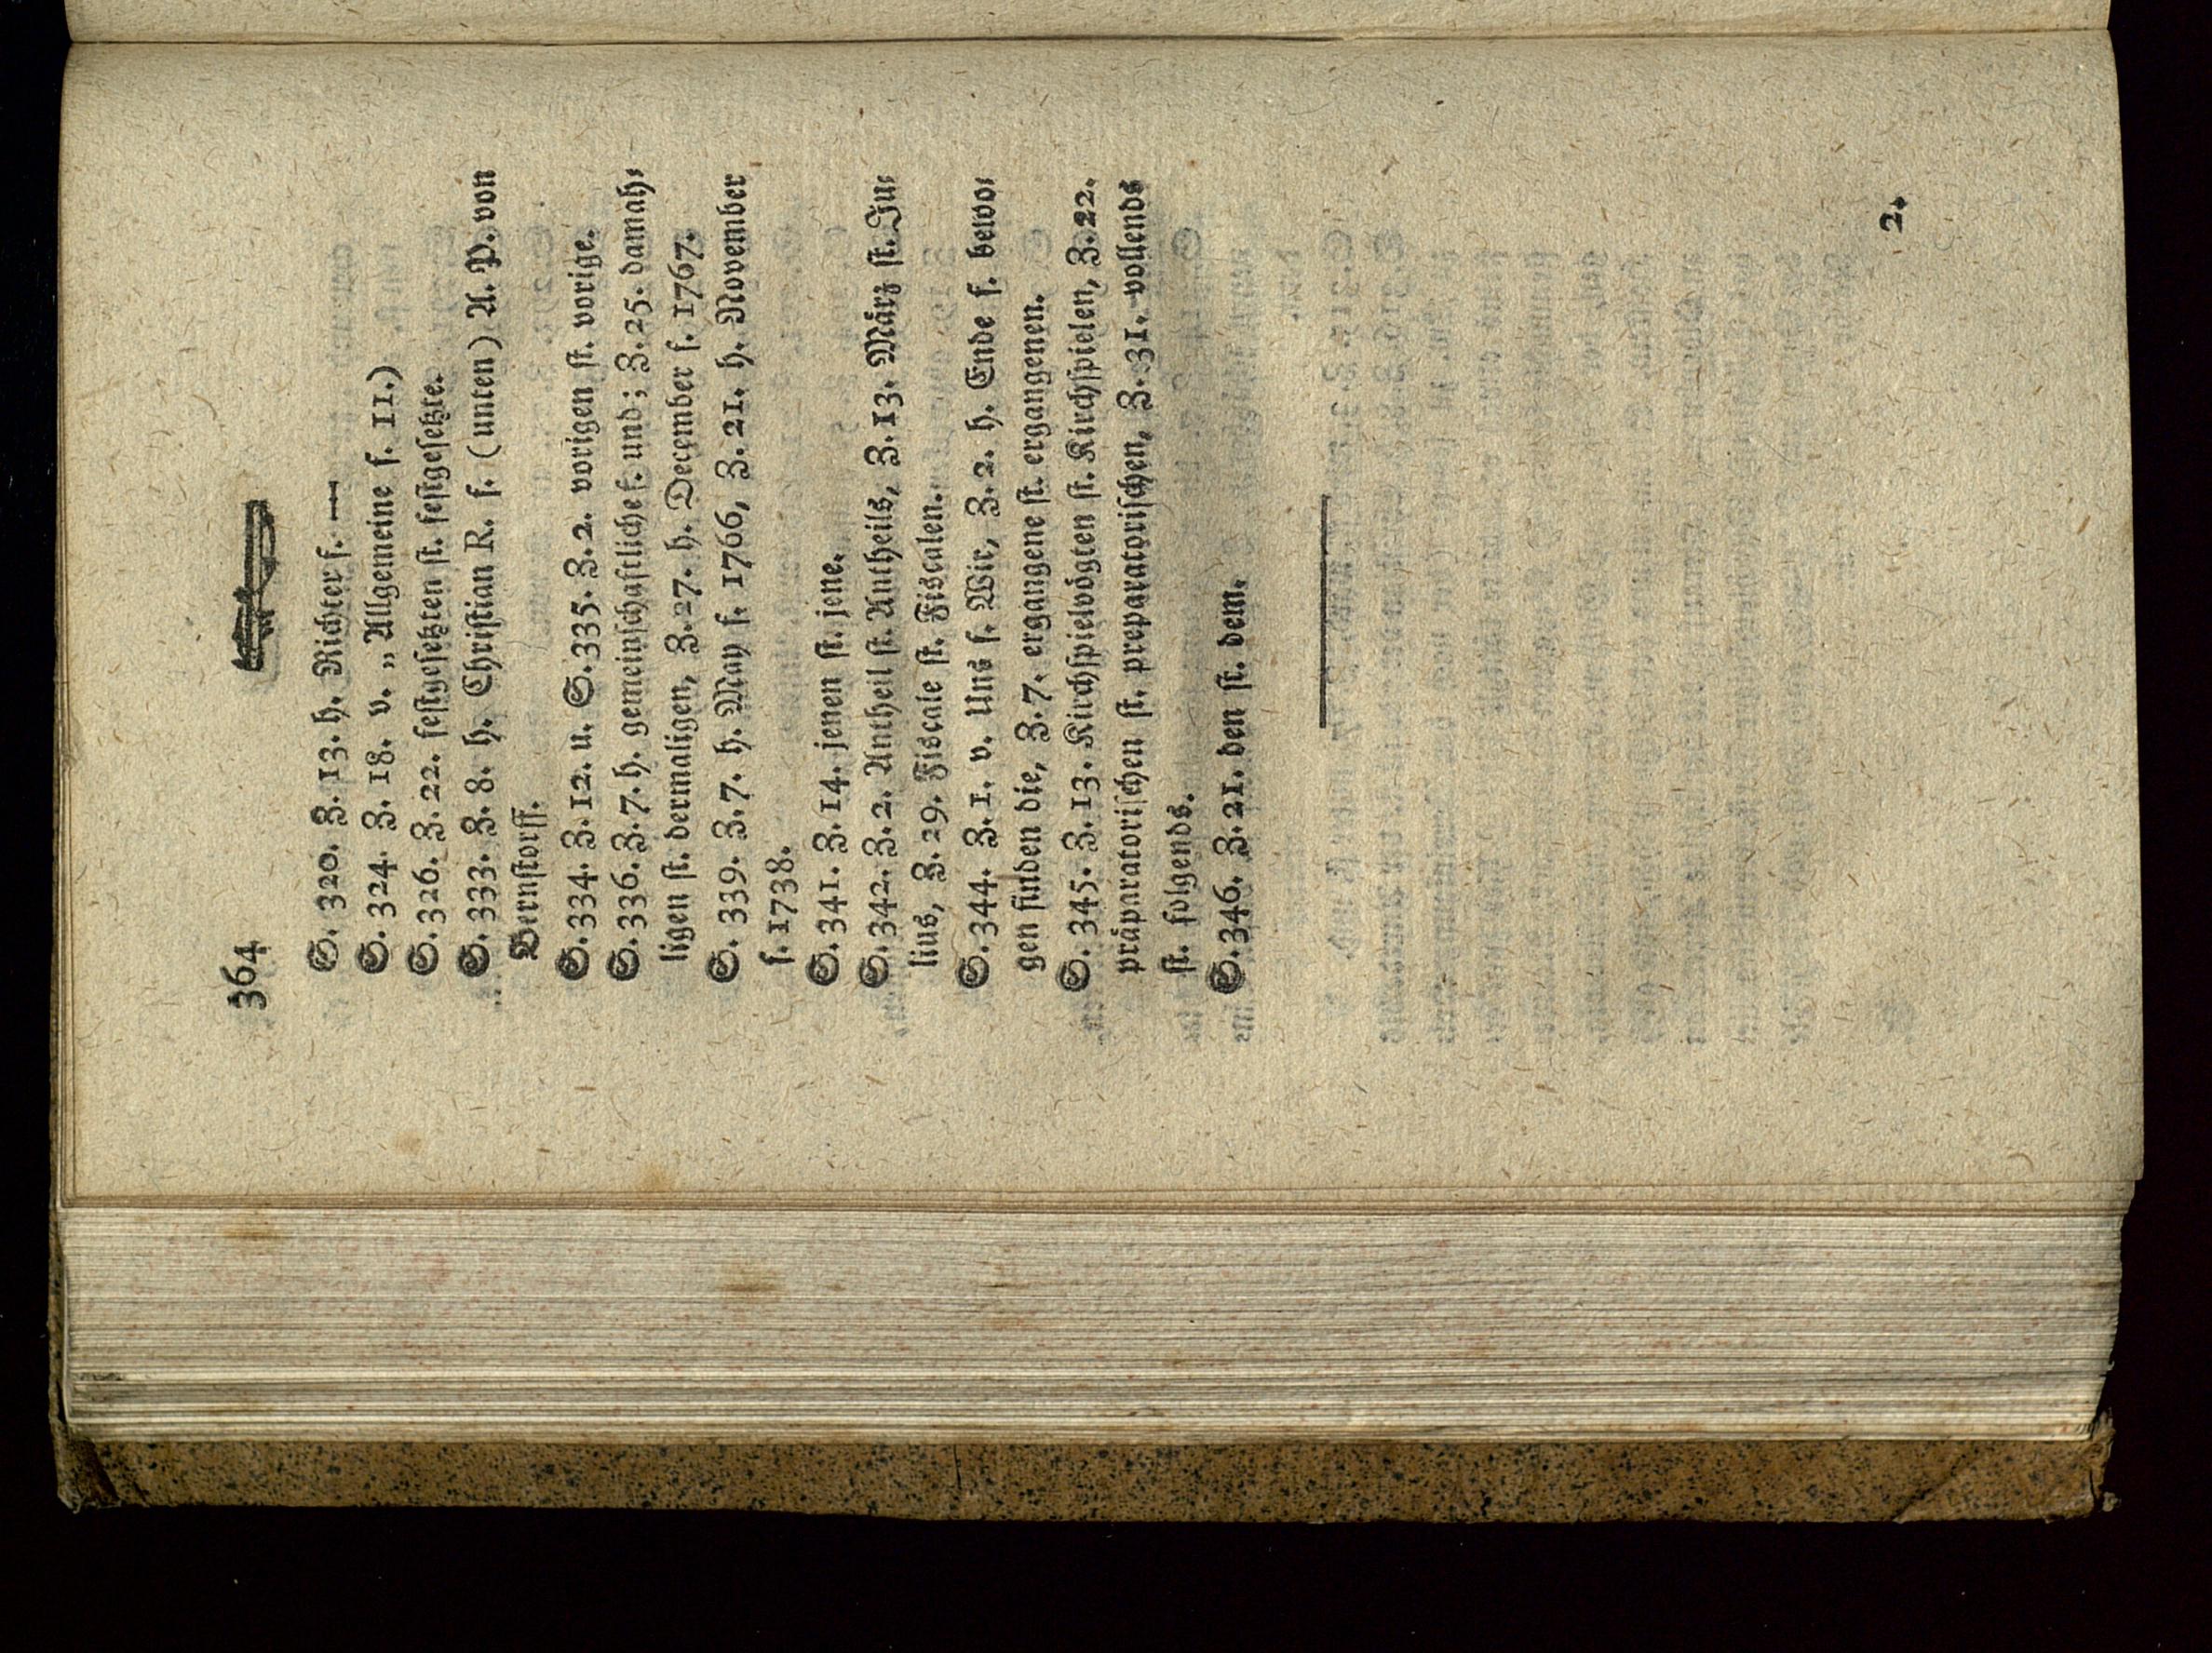 364
S. 320. Z. 13. h. Richter s. —
S. 324. Z. 18. v. „Allgemeine s. 11.)
S. 326. Z. 22. festgesetzten st. festgesetzte.
S. 333. Z. 8. h. Christian R. s. (unten) A. P. von
Bernstorff.
S. 334. Z. 12. u. S. 335. Z. 2. vorigen st. vorige.
S. 336. Z. 7. h. gemeinschaftliche s. und; Z. 25. damah⸗
ligen st. dermaligen, Z. 27. h. December s. 1767.
S. 339. Z. 7. h. May s. 1766, Z. 21. h. November
s. 1738.
S. 341. Z. 14. jenen st. jene.
S. 342. Z. 2. Antheil st. Antheils, Z. 13. März st. Ju⸗
lius, Z. 29. Fiscale st. Fiscalen.
S. 344. Z. 1. v. Uns s. Wir, Z. 2. h. Ende s. bewo⸗
gen finden die, Z. 7. ergangene st. ergangenen.
S. 345. Z. 13. Kirchspielvögten st. Kirchspielen, Z. 22.
präparatorischen st. preparatorischen, Z. 31. vollends
st. folgends.
S. 346. Z. 21. den st. dem.
2.